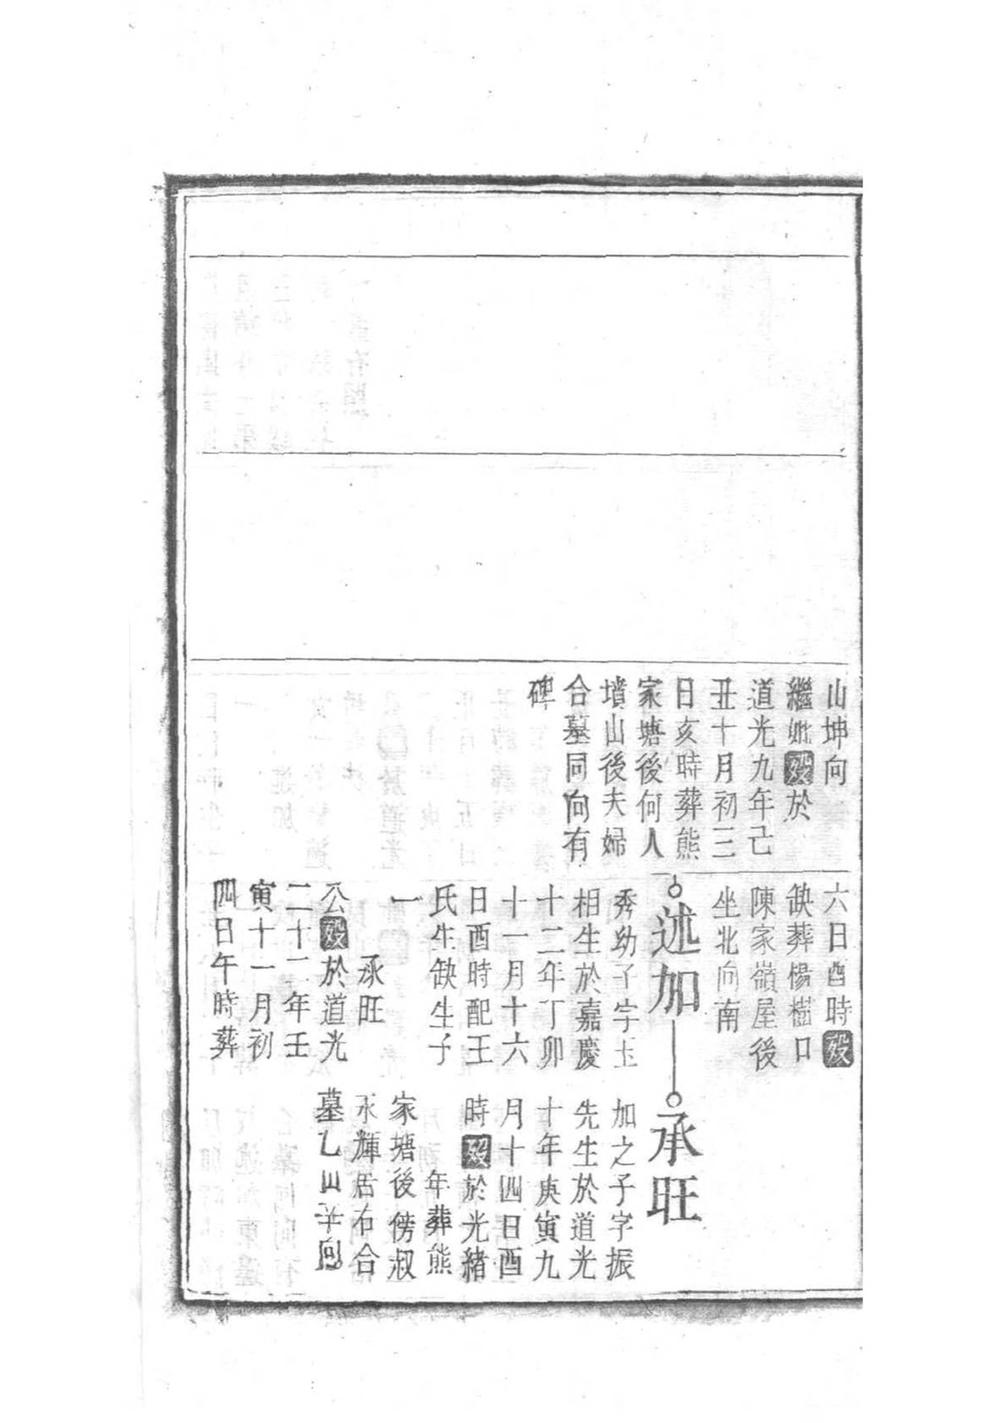 山坤向
繼妣殁於
道光九年己
丑十月初三
日亥時葬熊
家塘後何人
墳山後夫婦
合墓同向有
碑
六日酉時殁
缺葬楊樹口
陳家嶺屋後
坐北向南
述加
秀幼子字玉
相生於嘉慶
十二年丁卯
十一月十六
日酉時配王
氏生缺生子
一
承旺
公殁於道光
二十二年壬
寅十一月初
四日午時葬
承旺
加之子字振
先生於道光
十年庚寅九
月十四日酉
時殁於光緒
年葬熊
家塘後傍叔
承輝居右合
墓乙山辛向